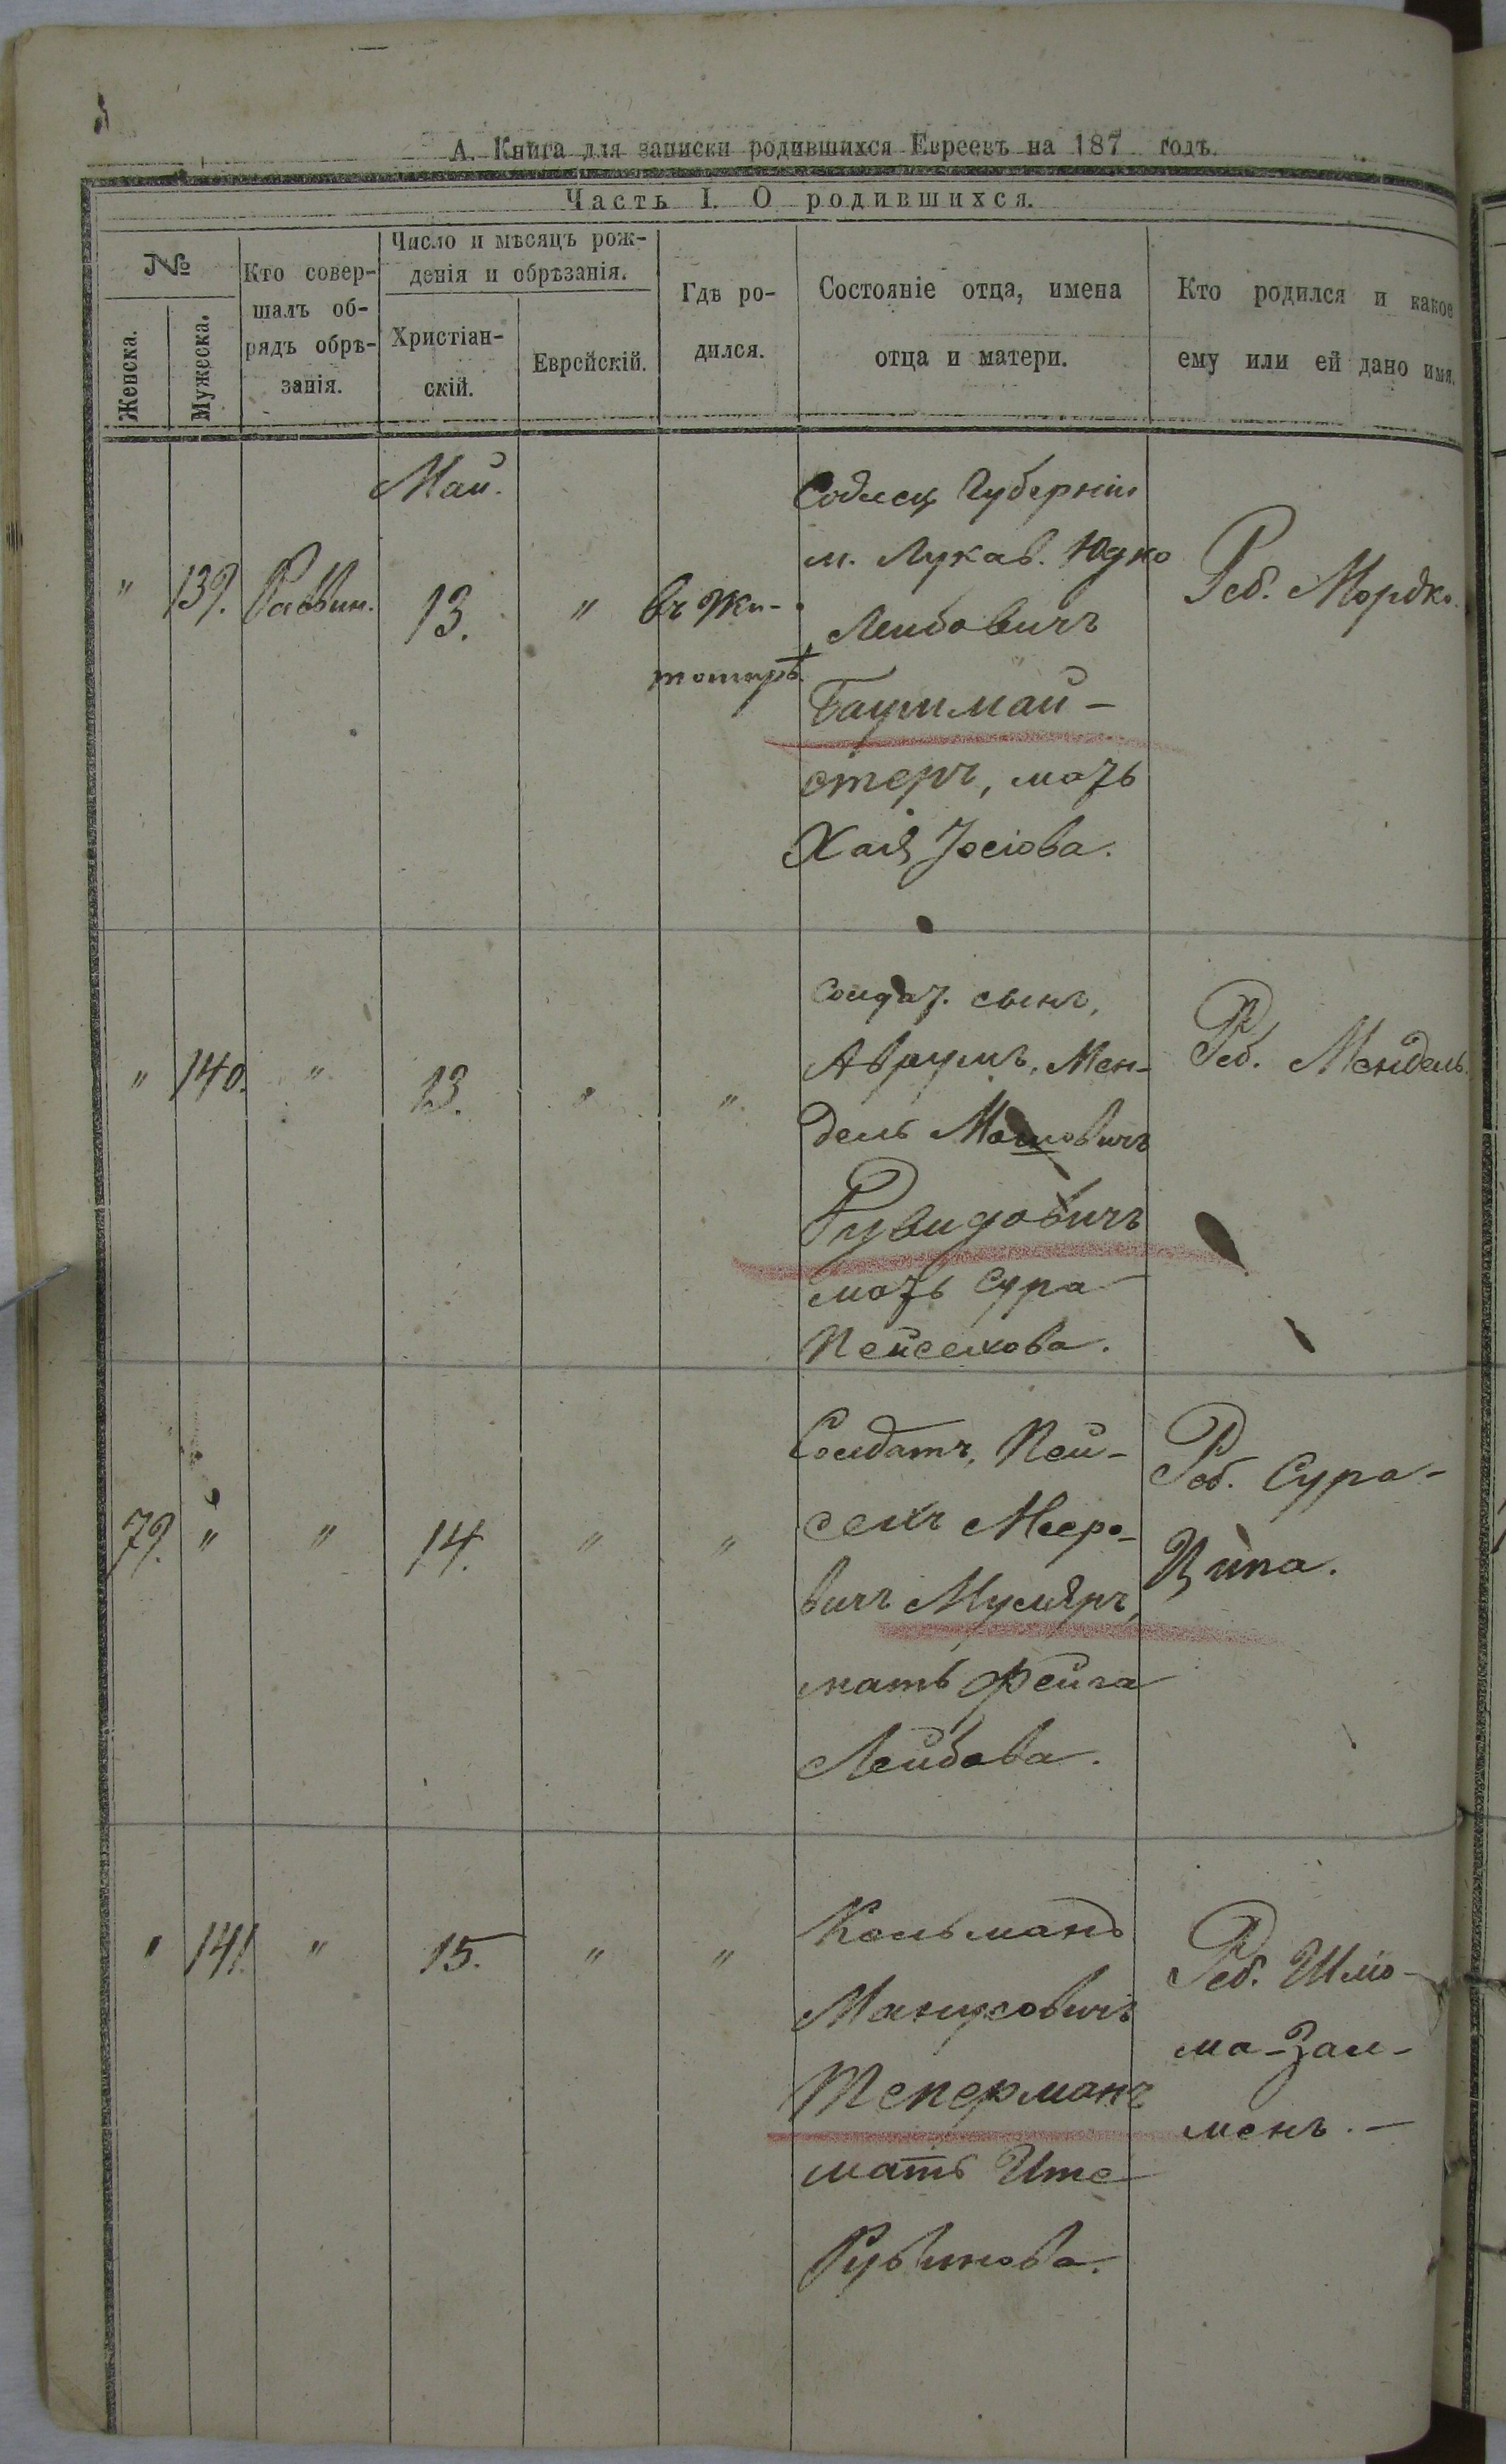 А. Книга для записки родившихся Евреевъ на 187 годъ.
Часть I. О родившихся.
№
Женска.
Мужеска.
Кто совер-
шалъ об-
рядъ обрѣ-
занія.
Число и мѣсяцъ рож-
денія и обрѣзанія.
Христіан-
скій.
Еврейскій.
Гдѣ ро-
дился.
Состояніе отца, имена
отца и матери.
Кто родился и какое
ему или ей дано имя.
Май.
" 139. Раввин. 13. " въ Жи-
томирѣ.
Губерніи
м. Лукав. Юдко
Лейбовичъ
Бауммай-
стеръ, мать
Хая Іосіова.
Реб. Мордко.
" 140. " 13. " "
Солдат. сынъ,
Аврумъ, Мен-
дель Мошковичъ
Рувидовичъ
мать Сура
Пейсахова.
Реб. Мендель.
79. " " 14. " "
Солдатъ, Пей-
сахъ Мееро-
вичъ Муляръ,
мать Фейга
Лейбова.
Реб. Сура-
Ципа.
" 141. " 15. " "
Кельманъ
Манусовичъ
Теперманъ
мать Ите
Рувинова.
Реб. Шлio-
ма-Зал-
менъ. -